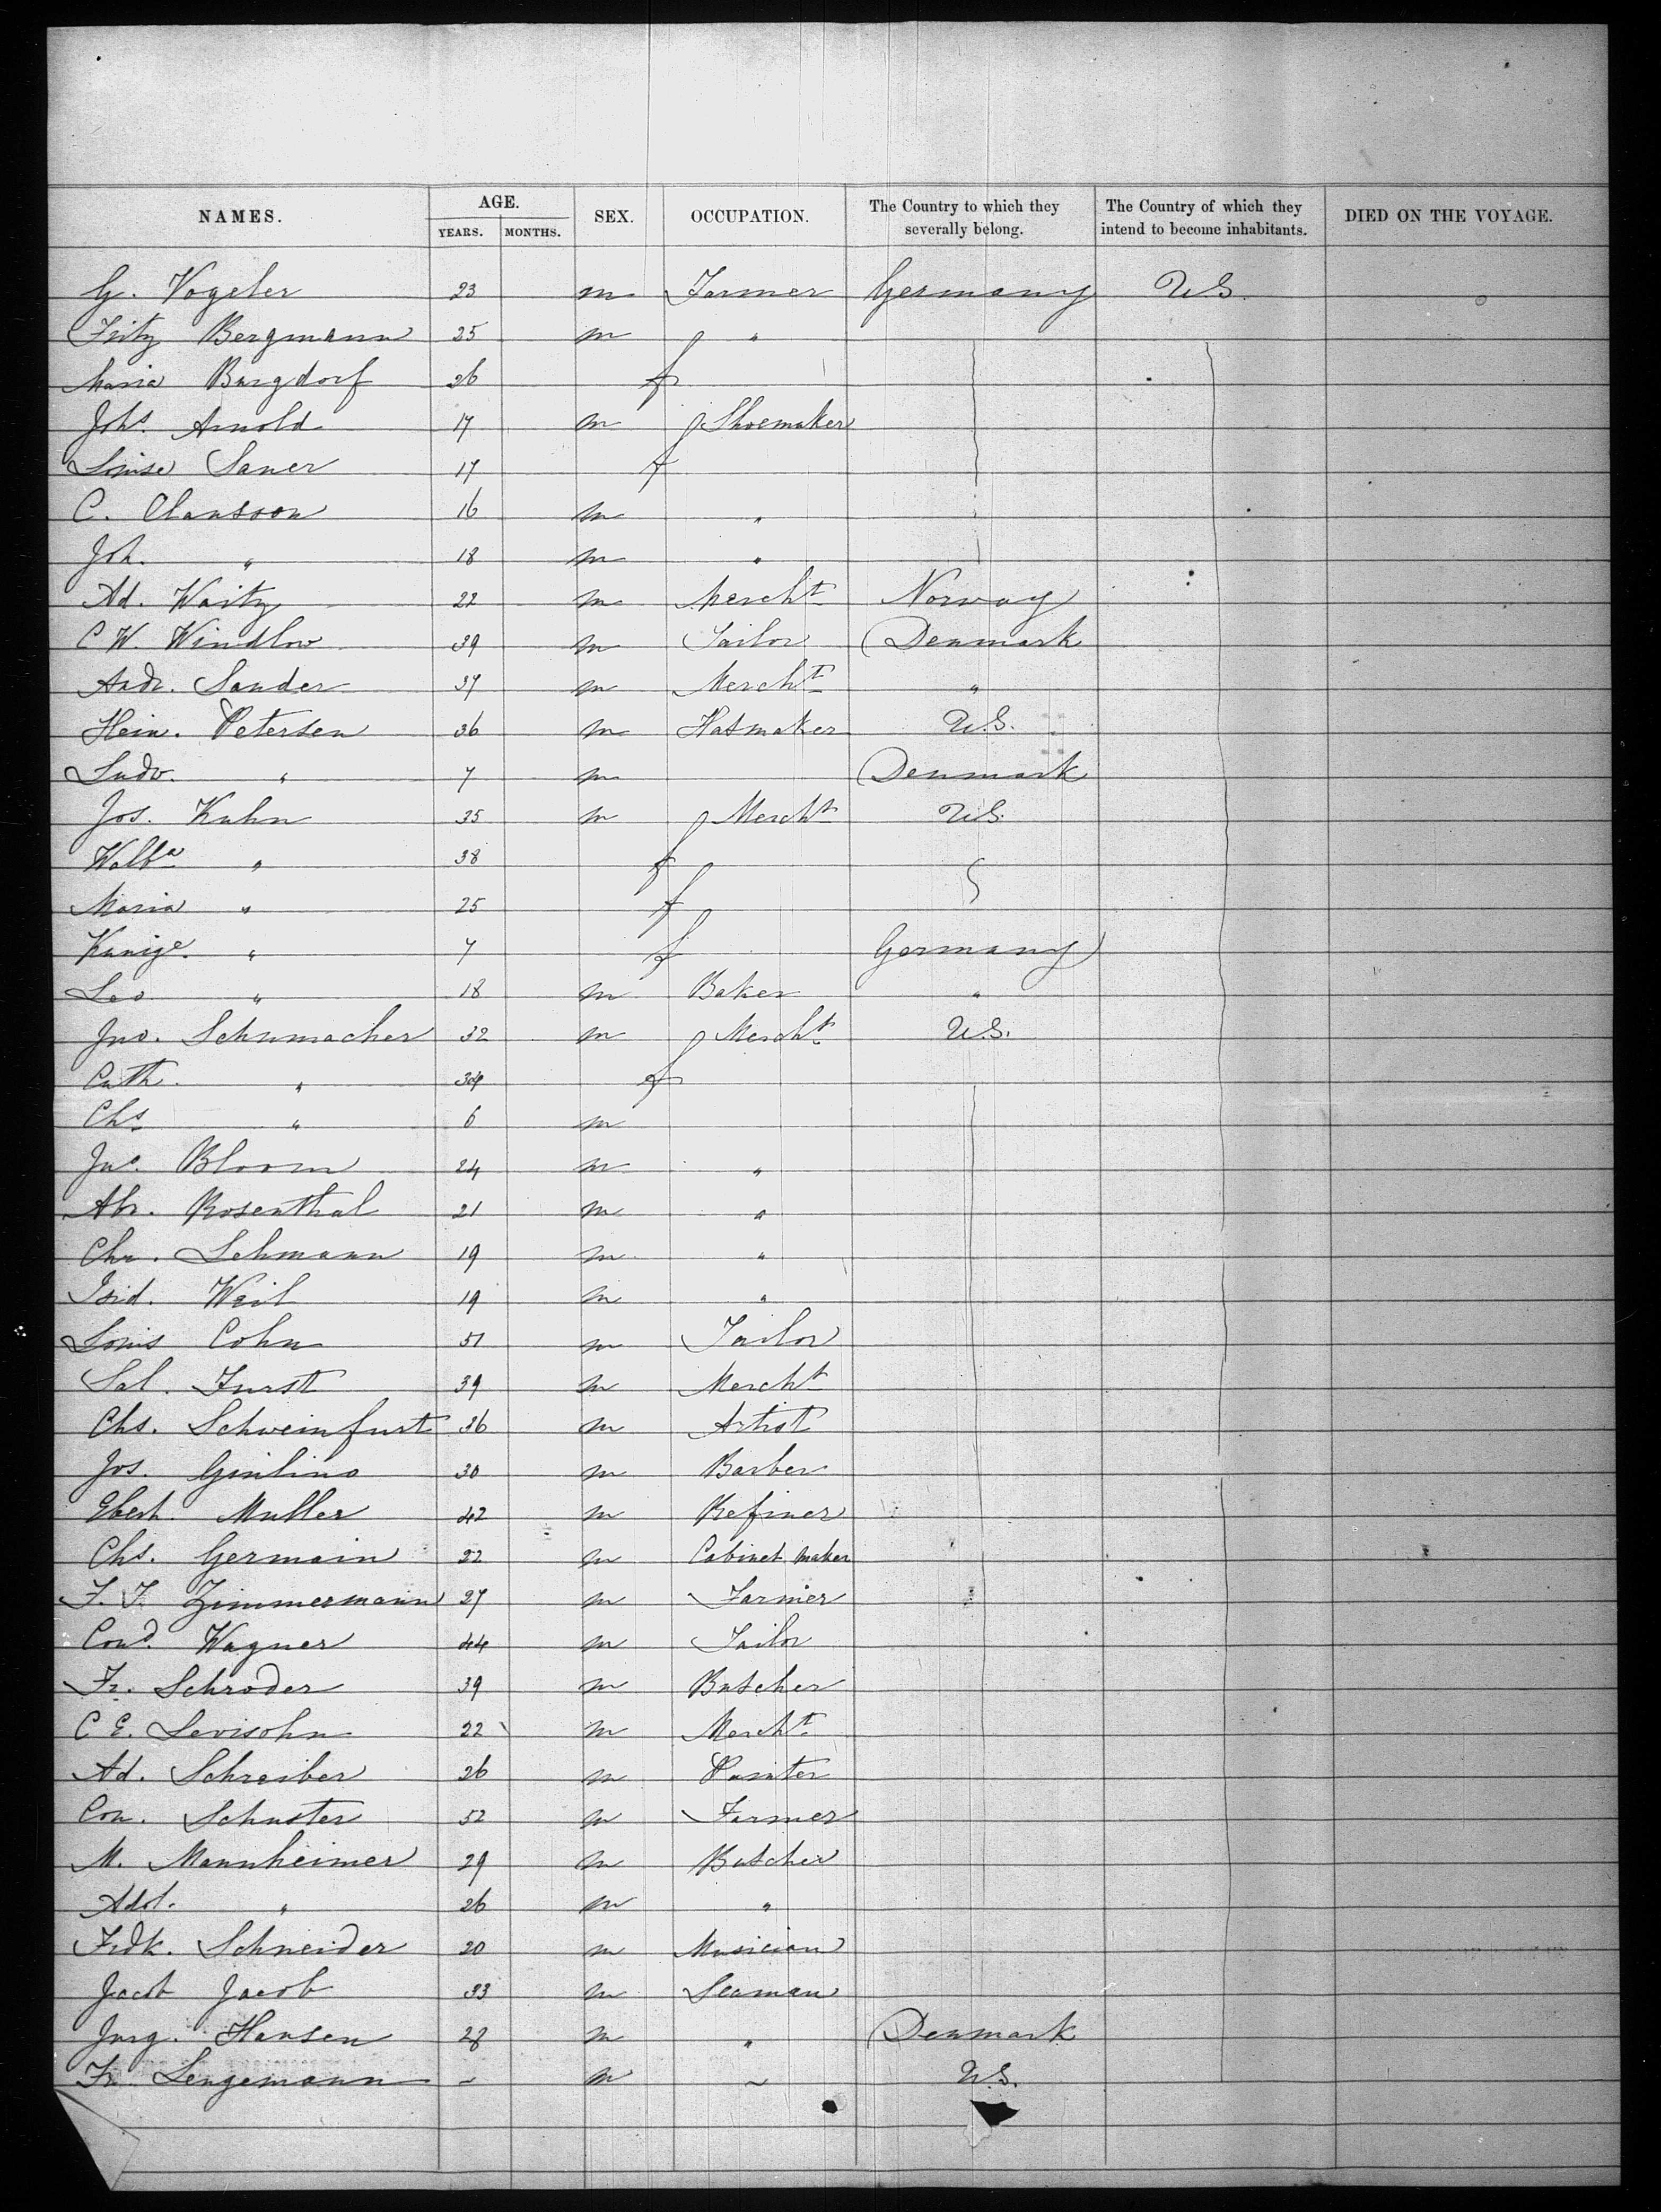 NAMES. AGE. SEX. OCCUPATION. The Country to which they severally belong. The Country of which they intend to become inhabitants. DIED ON THE VOYAGE.
YEARS. MONTHS.
G. Vogeler 23 m Farmer Germany U.S.
Fritz Bergmann 25 m "
Maria Burgdorf 26 f
Johs. Arnold 17 m Shoemaker
Louise Sauer 17 f
C. Clausson 16 m "
Joh. " 18 m "
Ad. Waitz 22 m Mercht Norway
C W. Windlow 39 m Tailor Denmark
Andr. Sander 37 m Mercht "
Hein. Petersen 36 m Hatmaker U.S.
Ludv. " 7 m Denmark
Jos. Kuhn 35 m Mercht U.S.
Walba " 38 f
Maria " 25 f
Kunige. " 7 f Germany
Leo " 18 m Baker "
Jno. Schumacher 32 m Mercht U.S.
Cath. " 34 f
Chs " 6 m
Jac. Bloom 24 m "
Abr. Rosenthal 21 m "
Chr. Lehmann 19 m "
Isid. Weil 19 m "
Louis Cohn 51 m Tailor
Sal. Furst 39 m Mercht
Chs. Schweinfurt 36 m Artist
Jos. Giulino 30 m Barber
Eberh. Muller 42 m Refiner
Chs. Germain 22 m Cabinet maker
F. F. Zimmermann 27 m Farmer
Cond. Wagner 44 m Tailor
Fr. Schroder 39 m Butcher
C E. Levisohn 22 m Mercht
Ad. Schreiber 26 m Painter
Con. Schuster 52 m Farmer
M. Mannheimer 29 m Butcher
Adol. " 26 m "
Frdk. Schneider 20 m Musician
Jacob Jacob 33 m Seaman
Jurg. Hansen 28 m " Denmark
Fr. Lengemann ~ m ~ U.S.